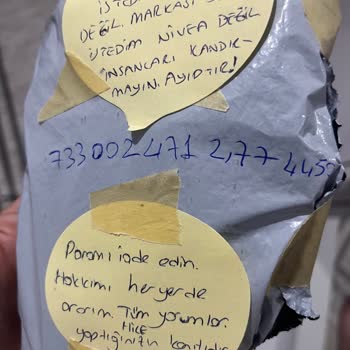 İSTED
DEĞİL. MARKASI
İSTEDİM NİVEA DEĞİL
İNSANLARI KANDIR-
MAYIN. AYIPTIR!
733002471 2,77 4450
Paramı iade edin.
Hakkımı her yerde
ararım. Tüm yorumlar.
Hile
yaptığınızın